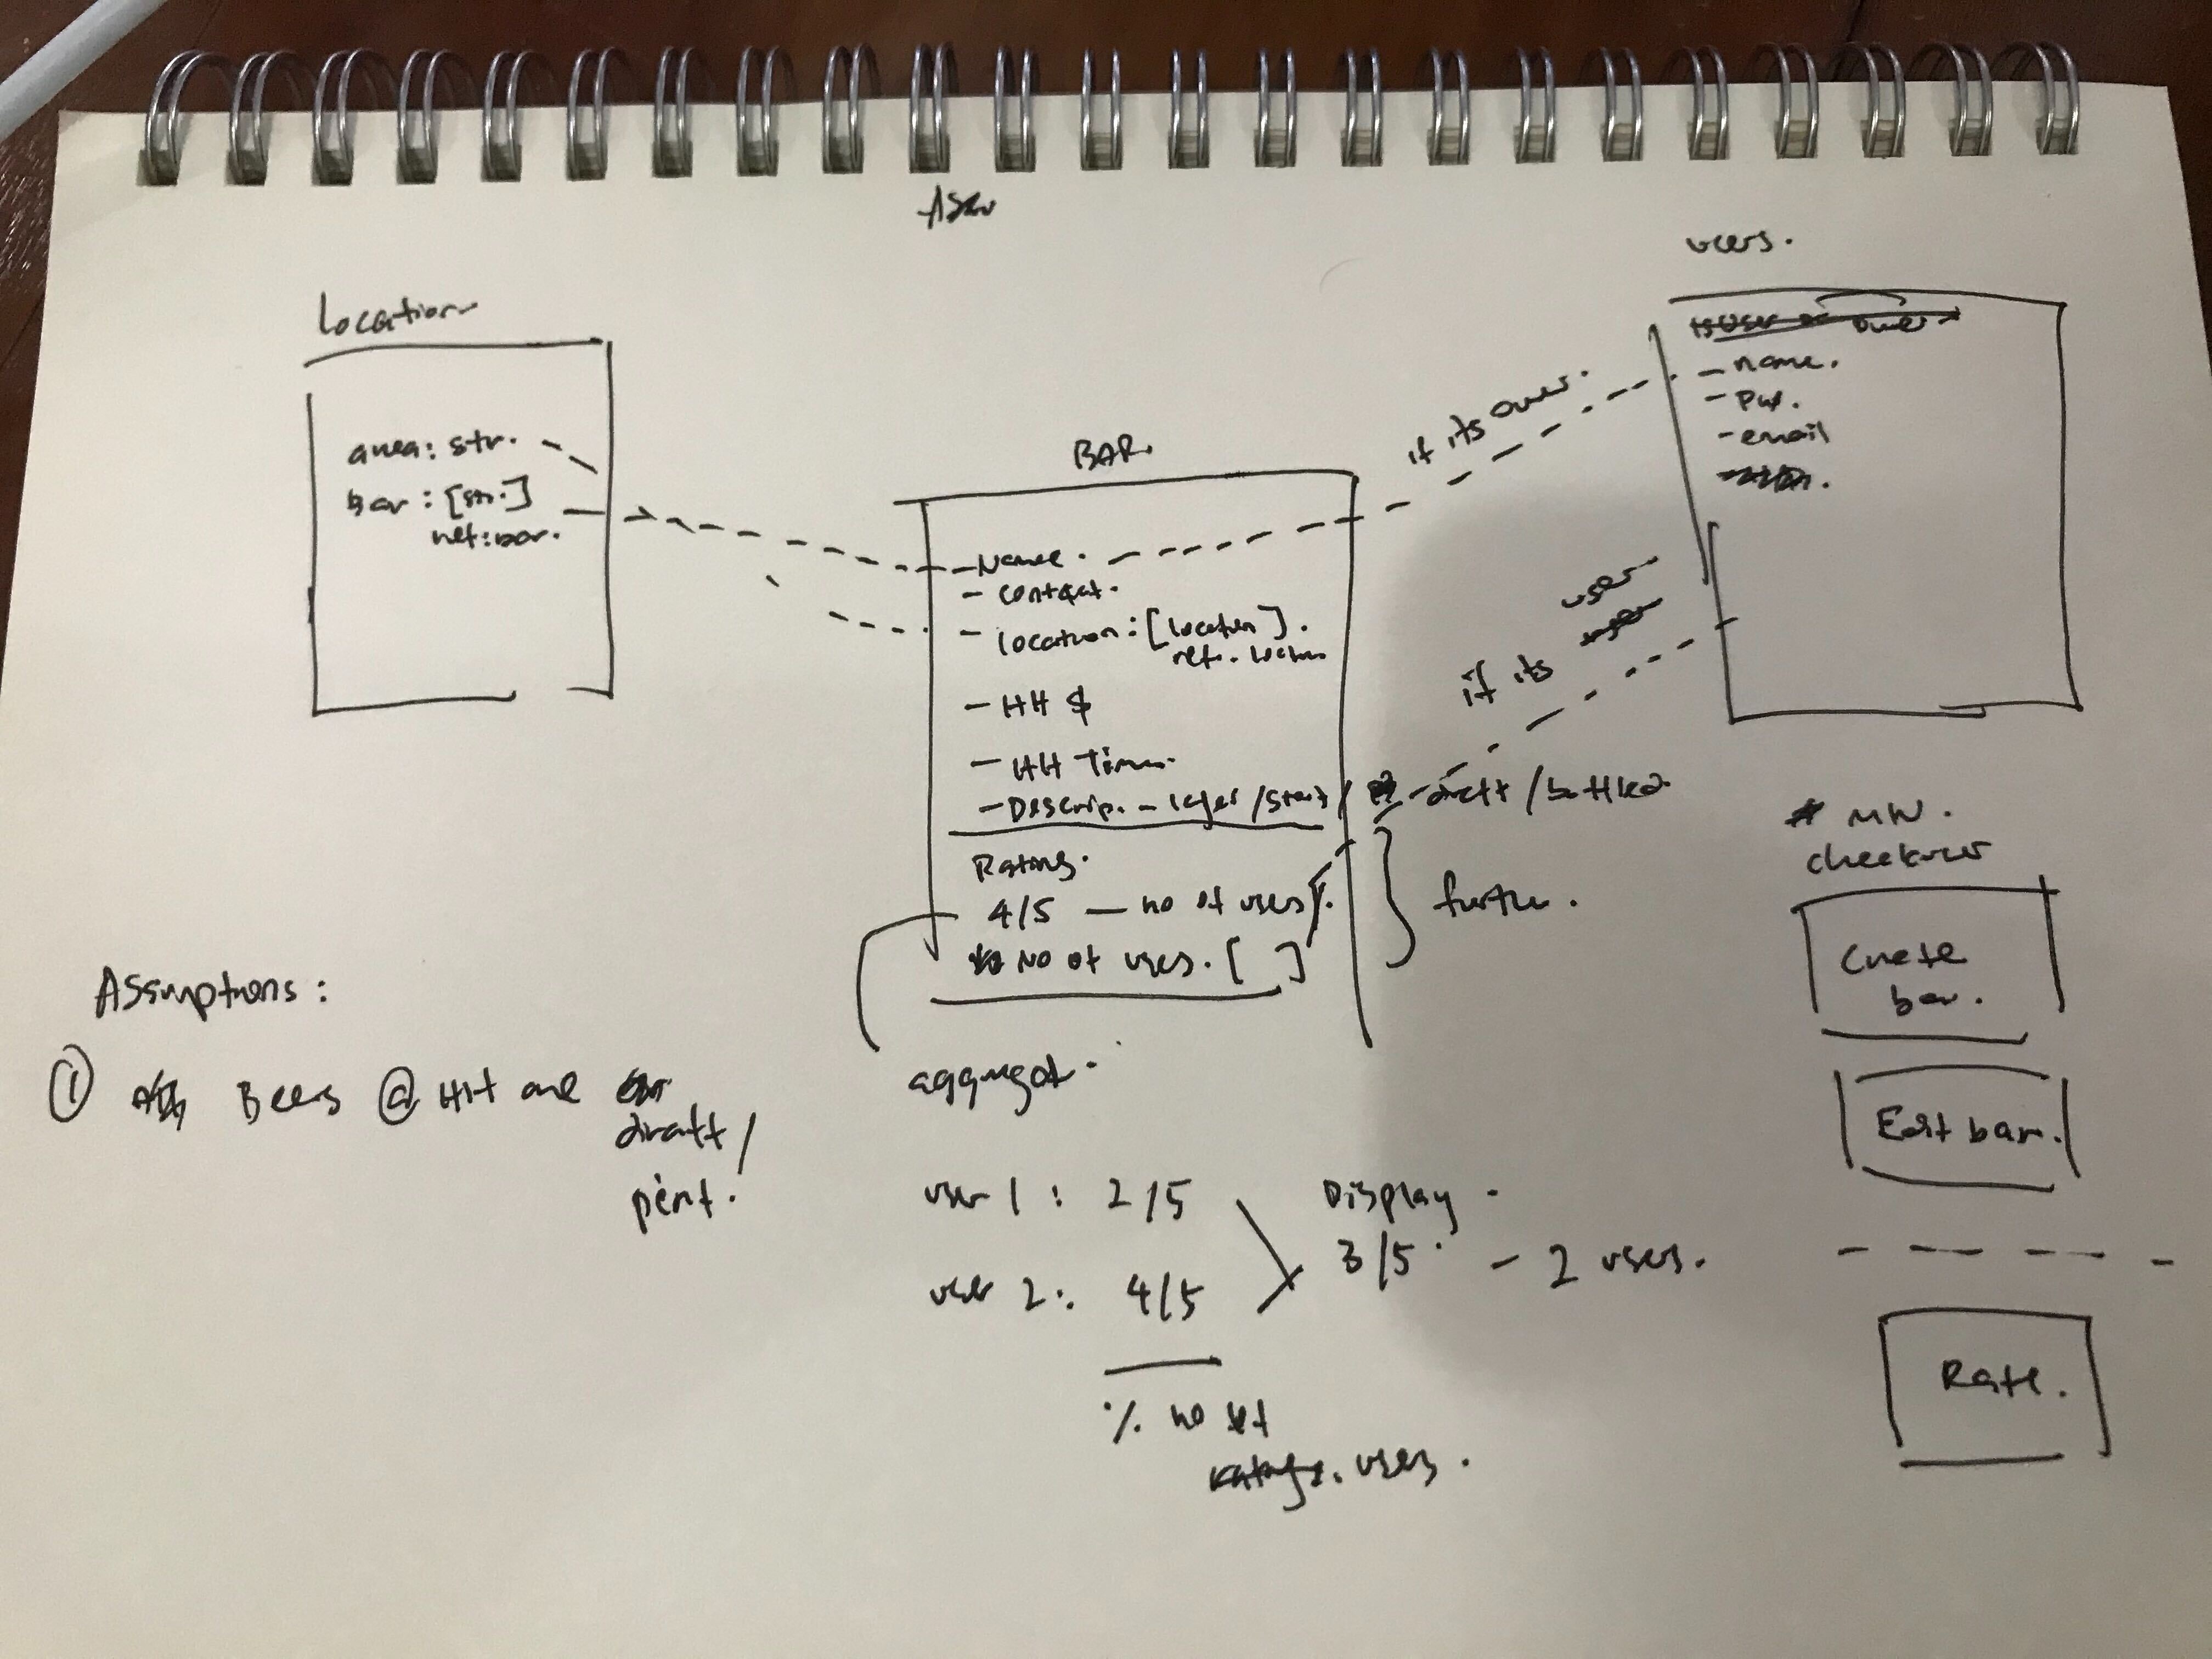 Location
area: str.
bar: [str.]
ref: bar.
BAR.
- Name.
- contact.
- location: [location].
ref. location
- HH $
- HH Time.
- Descrip. - lager / stout / draft / bottled.
Rating.
4/5 — no of users.
No of users. [ ]
} further.
aggregat.
if its owner.
if its user
users.
- name.
- pw.
- email
# MW.
checkuser
Create
bar.
Edit bar.
Rate.
Assumptions:
① Beers @ HH are
draft /
pint.
user 1 : 2/5
user 2 : 4/5
Display.
3/5 - 2 users.
% no of
ratings. users.